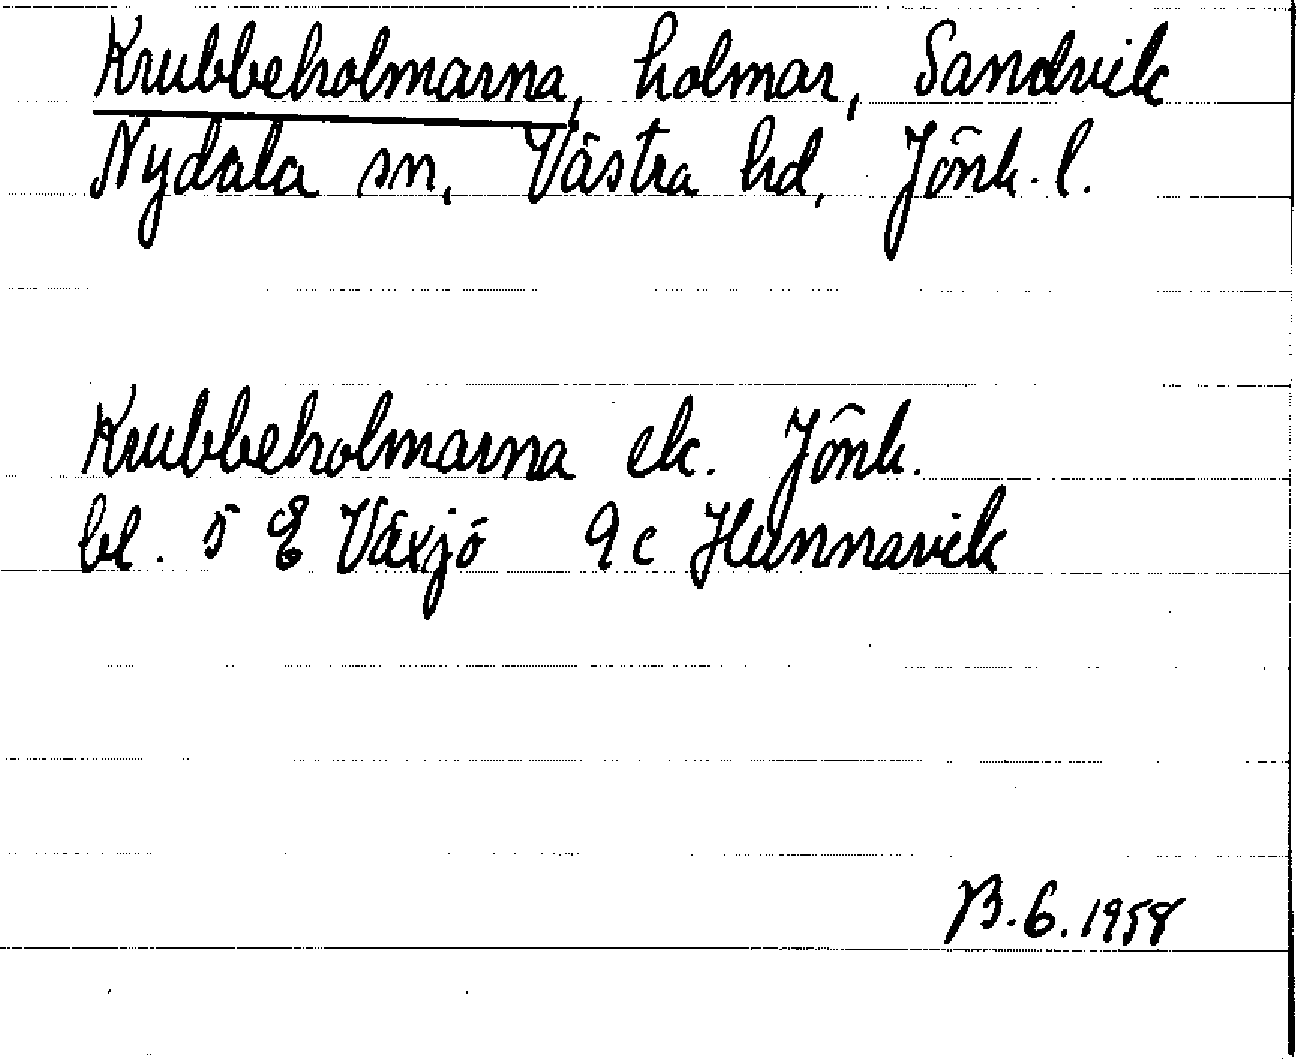 Krubbeholmarna, holmar, Sandvik
Nydala sn, Västra hd, Jönk. l.
Krubbeholmarna ek. Jönk.
bl. 5 E Växjö 9 c Hunnavik
B.G. 1958